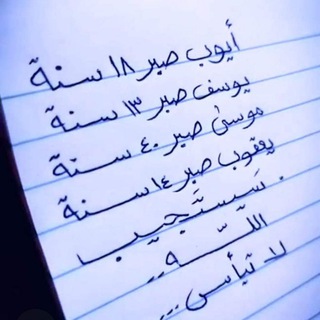 أيوب صبر ١٨ سنة
يوسف صبر ١٣ سنة
موسى صبر ٤٠ سنة
يعقوب صبر ١٤ سنة
سَيَستَجيب
اللّٰه ..
لا تيأس ...